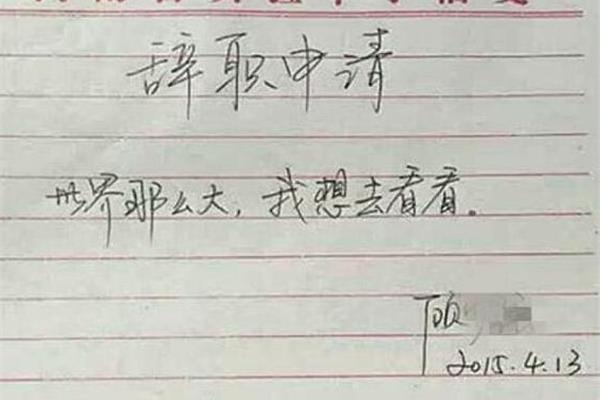 辞职申请
世界那么大，我想去看看。
顾
2015.4.13